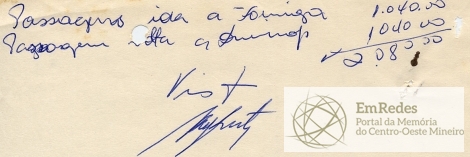 Passagens ida a Formiga 1.040.00
Passagem volta a 1040.00
2.080.00
Visto
EmRedes
Portal da Memória
do Centro-Oeste Mineiro